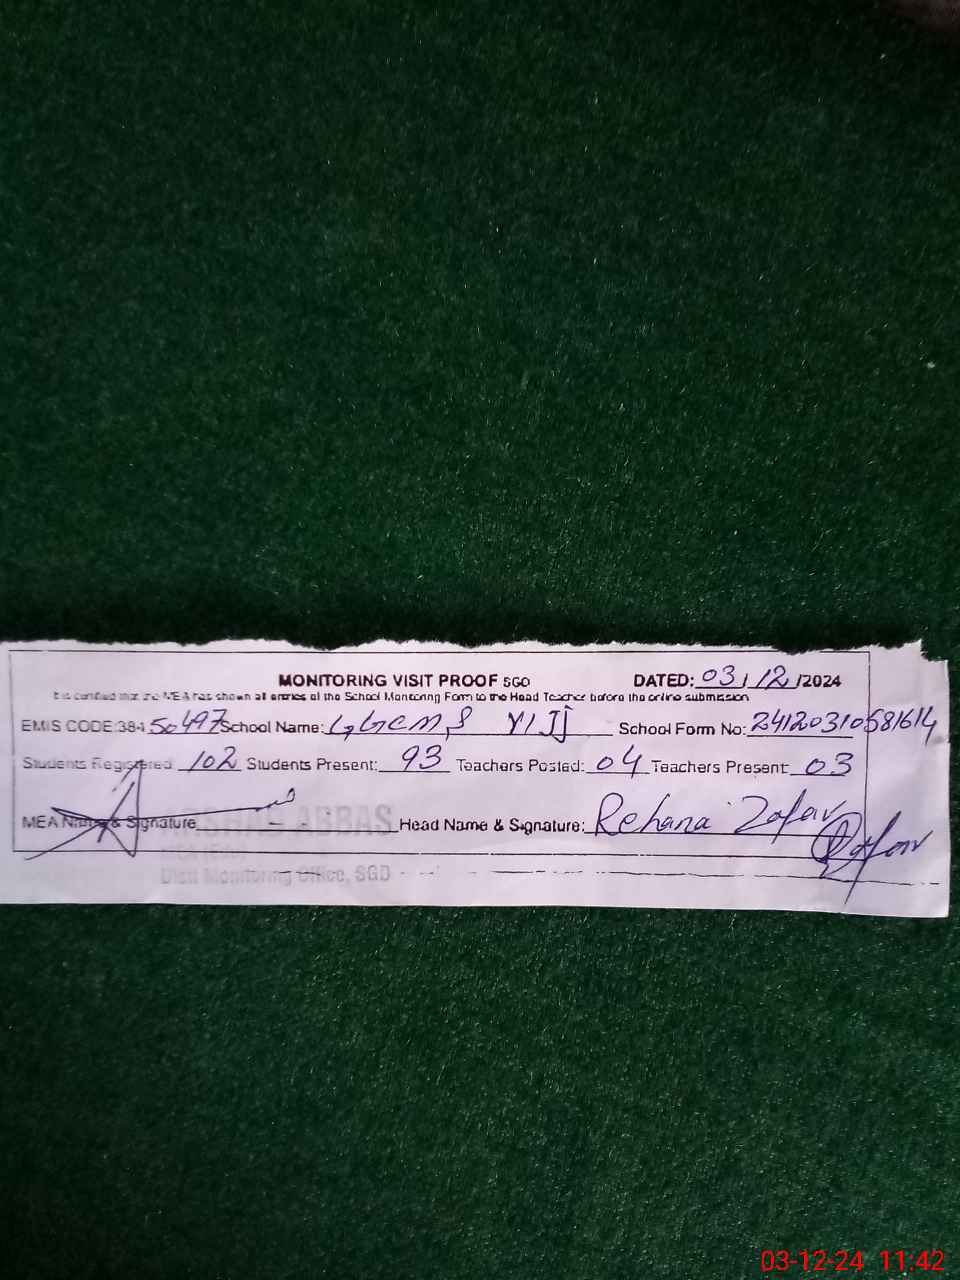 MONITORING VISIT PROOF SGD DATED: 03/12/2024
It is certified that the MEA has shown all entries of the School Monitoring Form to the Head Teacher before the online submission
EMIS CODE:384 50497 School Name: GGCMS School Form No: 24120310581614
Students Registered 102 Students Present: 93 Teachers Posted: 04 Teachers Present: 03
MEA Name & Signature ARSHAD ABBAS Head Name & Signature: Rehana Zafar
Distt Monitoring Office, SGD
03-12-24 11:42